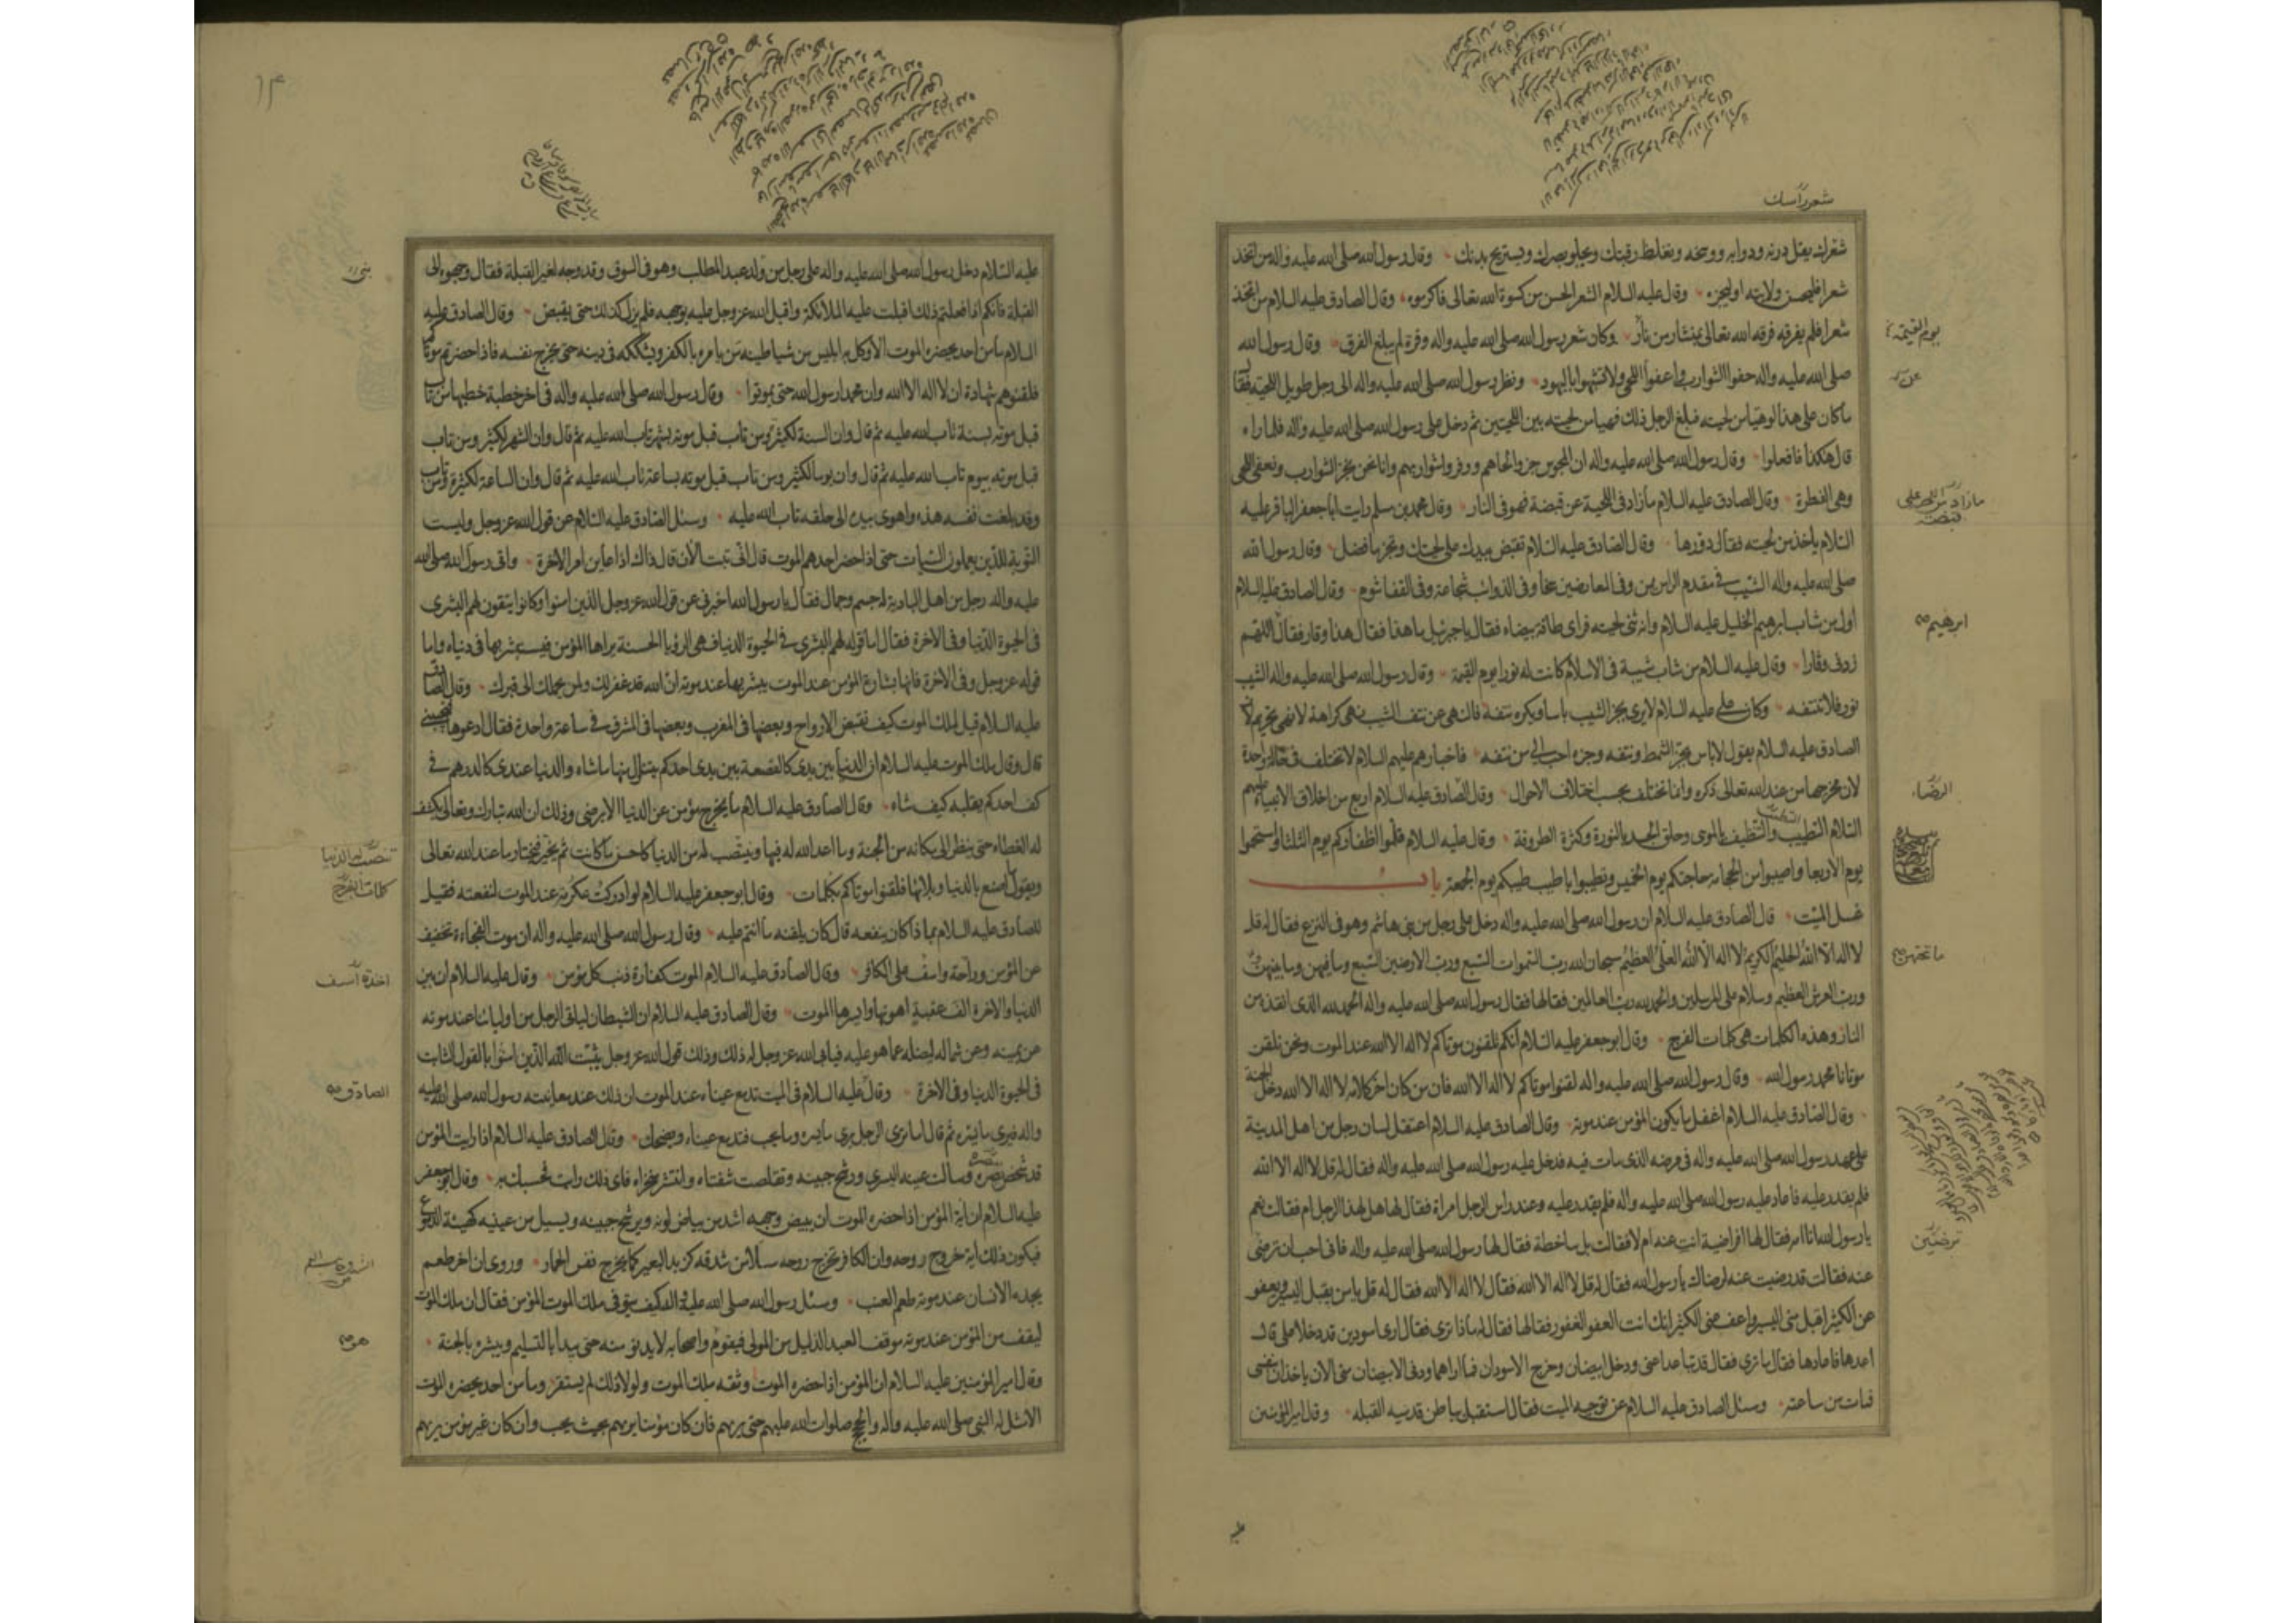 شعر رأسك
شعرك يقل درنه ودوابه ووسخه وتغلظ رقبتك ويجلو بصرك ويستريح بدنك وقال رسول الله صلى الله عليه واله من اتخذ
شعرا فليحسن ولايته او ليجزه وقال عليه السلام الشعر الحسن من كسوة الله تعالى فاكرموه وقال الصادق عليه السلام من اتخذ
شعرا فلم يفرقه فرقه الله تعالى بمنشار من نار وكان شعر رسول الله صلى الله عليه واله وفرة لم يبلغ الفرق وقال رسول الله
يوم القيمة
صلى الله عليه واله حفوا الشوارب واعفوا اللحى ولا تشبهوا باليهود ونظر رسول الله صلى الله عليه واله الى رجل طويل اللحية فقال
ما كان على هذا لو هيا من لحيته فبلغ الرجل ذلك فهيا من لحيته بين اللحيتين ثم دخل على رسول الله صلى الله عليه واله فلما راه
قال هكذا فافعلوا وقال رسول الله صلى الله عليه واله ان المجوس جزوا لحاهم ووفروا شواربهم وانا نحن نجز الشوارب ونعفى اللحى
وهى الفطرة وقال الصادق عليه السلام ما زاد فى اللحية عن قبضة فهو فى النار وقال محمد بن مسلم رايت ابا جعفر الباقر عليه
ما زاد من اللحية على
قبضة
السلام ياخذ من لحيته فقال دوروها وقال الصادق عليه السلام تقبض بيدك على لحيتك وتجز ما فضل وقال رسول الله
صلى الله عليه واله الشيب فى مقدم الراس يمن وفى العارضين سخا وفى الذوائب شجاعة وفى القفا شوم وقال الصادق عليه السلام
اول من شاب ابرهيم الخليل عليه السلام وانه ثنى لحيته فراى طاقة بيضاء فقال يا جبرئيل ما هذا فقال هذا وقار فقال اللهم
ابرهيم
زدنى وقارا وقال عليه السلام من شاب شيبة فى الاسلام كانت له نورا يوم القيمة وقال رسول الله صلى الله عليه واله الشيب
نور فلا تنتفه وكان على عليه السلام لا يرى بجز الشيب باسا ويكره نتفه فالنهى عن نتف الشيب نهى كراهة لا نهى تحريم لان
الصادق عليه السلام يقول لا باس بجز الشمط ونتفه وجزه احب الى من نتفه فاخبارهم عليهم السلام لا تختلف فى حالة واحدة
لان مخرجها من عند الله تعالى ذكره وانما تختلف بحسب اختلاف الاحوال وقال الصادق عليه السلام اربع من اخلاق الانبياء عليهم
السلام التطيب والتنظيف بالموسى وحلق الجسد بالنورة وكثرة الطروقة وقال عليه السلام قلموا اظفاركم يوم الثلثا واستحموا
يوم الاربعا واصيبوا من الحجامة حاجتكم يوم الخميس وتطيبوا باطيب طيبكم يوم الجمعة باب
غسل الميت قال الصادق عليه السلام ان رسول الله صلى الله عليه واله دخل على رجل من بنى هاشم وهو فى النزع فقال له قل
لا اله الا الله الحليم الكريم لا اله الا الله العلى العظيم سبحان الله رب السموات السبع ورب الارضين السبع وما فيهن وما بينهن
وما تحتهن
ورب العرش العظيم وسلام على المرسلين والحمد لله رب العالمين فقالها فقال رسول الله صلى الله عليه واله الحمد لله الذى انقذه من
النار وهذه الكلمات هى كلمات الفرج وقال ابو جعفر عليه السلام انكم تلقنون موتاكم لا اله الا الله عند الموت ونحن نلقن
موتانا محمد رسول الله وقال رسول الله صلى الله عليه واله لقنوا موتاكم لا اله الا الله فان من كان اخر كلامه لا اله الا الله دخل الجنة
وقال الصادق عليه السلام اغفل ما يكون المؤمن عند موته وقال الصادق عليه السلام اعتقل لسان رجل من اهل المدينة
على عهد رسول الله صلى الله عليه واله فى مرضه الذى مات فيه فدخل عليه رسول الله صلى الله عليه واله فقال له قل لا اله الا الله
فلم يقدر عليه فاعاد عليه رسول الله صلى الله عليه واله فلم يقدر عليه وعند راس الرجل امراة فقال لها هل لهذا الرجل ام فقالت نعم
يا رسول الله انا امه فقال لها افراضية انت عنه ام لا فقالت بل ساخطة فقال لها رسول الله صلى الله عليه واله فانى احب ان ترضى
ترضين
عنه فقالت قد رضيت عنه لرضاك يا رسول الله فقال له قل لا اله الا الله فقال لا اله الا الله فقال له قل يا من يقبل اليسير ويعفو
عن الكثير اقبل منى اليسير واعف عنى الكثير انك انت العفو الغفور فقالها فقال له ما ذا ترى فقال ارى اسودين قد دخلا على قال
اعدها فاعادها فقال ما ترى فقال قد تباعدا عنى ودخل ابيضان وخرج الاسودان فما اراهما ودنى الابيضان منى الان ياخذان بنفسى
فمات من ساعته وسئل الصادق عليه السلام عن توجيه الميت فقال استقبل بباطن قدميه القبله وقال امير المؤمنين
عليه
١٣
عليه السلام دخل رسول الله صلى الله عليه واله على رجل من ولد عبد المطلب وهو فى السوق وقد وجه لغير القبلة فقال وجهوه الى
القبلة فانكم اذا فعلتم ذلك اقبلت عليه الملائكة واقبل الله عز وجل عليه بوجهه فلم يزل كذلك حتى يقبض وقال الصادق عليه
السلام ما من احد يحضره الموت الا وكل به ابليس من شياطينه من يامره بالكفر ويشككه فى دينه حتى يخرج نفسه فاذا حضرتم موتاكم
فلقنوهم شهادة ان لا اله الا الله وان محمدا رسول الله حتى يموتوا وقال رسول الله صلى الله عليه واله فى اخر خطبة خطبها من تاب
قبل موته بسنة تاب الله عليه ثم قال وان السنة لكثيرة ومن تاب قبل موته بشهر تاب الله عليه ثم قال وان الشهر لكثير ومن تاب
قبل موته بيوم تاب الله عليه ثم قال وان يوما لكثير ومن تاب قبل موته بساعة تاب الله عليه ثم قال وان الساعة لكثيرة ومن تاب
وقد بلغت نفسه هذه واهوى بيده الى حلقه تاب الله عليه وسئل الصادق عليه السلام عن قول الله عز وجل وليست
التوبة للذين يعملون السيئات حتى اذا حضر احدهم الموت قال انى تبت الان قال ذاك اذا عاين امر الاخرة واتى رسول الله صلى الله
عليه واله رجل من اهل البادية له جسم وجمال فقال يا رسول الله اخبرنى عن قول الله عز وجل الذين امنوا وكانوا يتقون لهم البشرى
فى الحيوة الدنيا وفى الاخرة فقال اما قوله لهم البشرى فى الحيوة الدنيا فهى الرؤيا الحسنة يراها المؤمن فيستبشر بها فى دنياه واما
قوله عز وجل وفى الاخرة فانها بشارة المؤمن عند الموت يبشر بها عند موته ان الله قد غفر لك ولمن يحملك الى قبرك وقال الصادق
عليه السلام قيل لملك الموت كيف تقبض الارواح وبعضها فى المغرب وبعضها فى المشرق فى ساعة واحدة فقال ادعوها فتجيبنى
قال وقال ملك الموت عليه السلام ان الدنيا بين يدى كالقصعة بين يدى احدكم يتناول منها ما شاء والدنيا عندى كالدرهم فى
كف احدكم يقلبه كيف شاء وقال الصادق عليه السلام ما يخرج مؤمن عن الدنيا الا برضى وذلك ان الله تبارك وتعالى يكشف
له الغطاء حتى ينظر الى مكانه من الجنة وما اعد الله له فيها وينصب له من الدنيا كاحسن ما كانت ثم يخير فيختار ما عند الله تعالى
تنصب له الدنيا
ويقول ما اصنع بالدنيا وبلائها فلقنوا موتاكم بكلمات وقال ابو جعفر عليه السلام لو ادركت عكرمة عند الموت لنفعته فقيل
كلمات الفرج
للصادق عليه السلام بما ذا كان ينفعه قال كان يلقنه ما انتم عليه وقال رسول الله صلى الله عليه واله ان موت الفجاءة تخفيف
عن المؤمن وراحة واسف على الكافر وقال الصادق عليه السلام الموت كفارة ذنب كل مؤمن وقال عليه السلام ان بين
اخذة اسف
الدنيا والاخرة الف عقبة اهونها وايسرها الموت وقال الصادق عليه السلام ان الشيطان لياتى الرجل من اوليائنا عند موته
عن يمينه وعن شماله ليضله عما هو عليه فيابى الله عز وجل له ذلك وذلك قول الله عز وجل يثبت الله الذين امنوا بالقول الثابت
فى الحيوة الدنيا وفى الاخرة وقال عليه السلام فى الميت تدمع عيناه عند الموت ان ذلك عند معاينته رسول الله صلى الله عليه
الصادق
واله فيرى ما يسره ثم قال اما ترى الرجل يرى ما يسره وما يحب فتدمع عيناه ويضحك وقال الصادق عليه السلام اذا رايت المؤمن
قد شخص ببصره وسالت عينه اليسرى ورشح جبينه وتقلصت شفتاه وانتشر منخراه فاى ذلك رايت فحسبك به وقال ابو جعفر
عليه السلام ان اية المؤمن اذا حضره الموت ان يبيض وجهه اشد من بياض لونه ويرشح جبينه ويسيل من عينيه كهيئة الدموع
فيكون ذلك اية خروج روحه وان الكافر تخرج روحه سلا من شدقه كزبد البعير كما يخرج نفس الحمار وروى ان اخر طعم
يجده الانسان عند موته طعم العنب وسئل رسول الله صلى الله عليه واله كيف يتوفى ملك الموت المؤمن فقال ان ملك الموت
ليقف من المؤمن عند موته موقف العبد الذليل من المولى فيقوم واصحابه لا يدنو منه حتى يبدأ بالتسليم ويبشره بالجنة
هو
وقال امير المؤمنين عليه السلام ان المؤمن اذا حضره الموت وثقه ملك الموت ولولا ذلك لم يستقر وما من احد يحضره الموت
الا مثل له النبى صلى الله عليه واله والحجج صلوات الله عليهم حتى يريهم فان كان مؤمنا يريهم بحيث يحب وان كان غير مؤمن يريهم